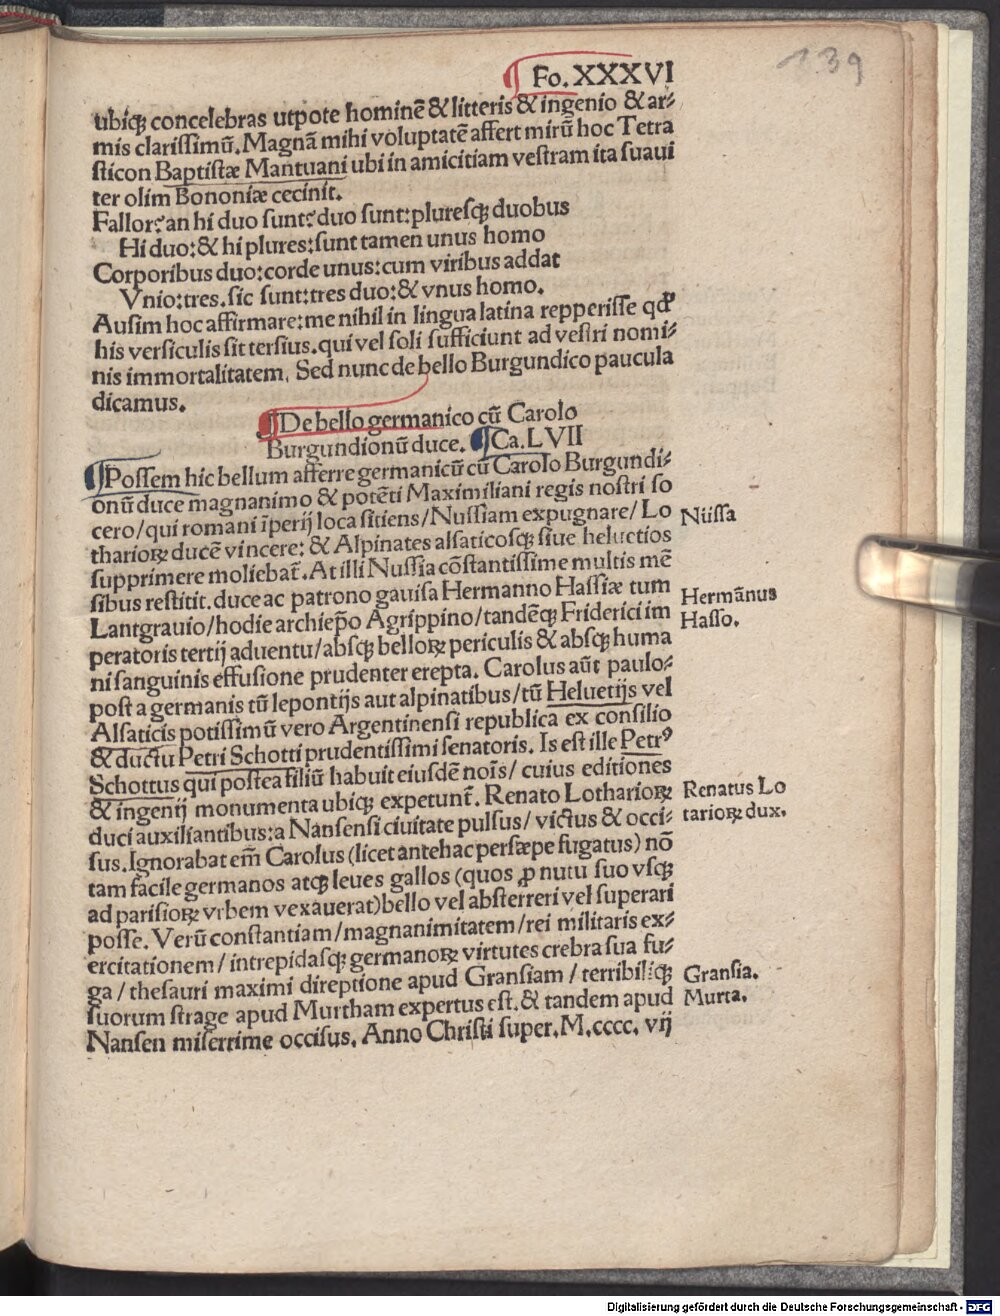 139
Fo. XXXVI
ubiqꝫ concelebras utpote hominē & litteris & ingenio & ar⸗
mis clariſſimū. Magnā mihi voluptatē affert mirū hoc Tetra
ſticon Baptiſtæ Mantuani ubi in amicitiam veſtram ita ſuaui
ter olim Bononiæ cecinit.
Fallor? an hi duo ſunt? duo ſunt: plureſqꝫ duobus
Hi duo: & hi plures: ſunt tamen unus homo
Corporibus duo: corde unus: cum viribus addat
Vnio: tres. ſic ſunt: tres duo: & vnus homo.
Auſim hoc affirmare: me nihil in lingua latina repperiſſe qđ
his verſiculis ſit terſius. qui vel ſoli ſufficiunt ad veſtri nomi⸗
nis immortalitatem. Sed nunc de bello Burgundico paucula
dicamus.
¶ De bello germanico cū Carolo
Burgundionū duce. ¶ Ca. LVII
¶ Poſſem hic bellum afferre germanicū cū Carolo Burgundi⸗
onū duce magnanimo & potēti Maximiliani regis noſtri ſo
cero/ qui romani īperij loca ſitiens/ Nuſſiam expugnare/ Lo
thariorꝝ ducē vincere: & Alpinates alſaticoſqꝫ ſiue heluetios
ſupprimere moliebat̄. At illi Nuſſia cōſtantiſſime multis mē
ſibus reſtitit. duce ac patrono gauiſa Hermanno Haſſiæ tum
Lantgrauio/ hodie archiep̄o Agrippino/ tandēqꝫ Friderici im
peratoris tertij aduentu/ abſqꝫ bellorꝝ periculis & abſqꝫ huma
ni ſanguinis effuſione prudenter erepta. Carolus aūt paulo⸗
poſt a germanis tū lepontijs aut alpinatibus/ tū Heluetijs vel
Alſaticis potiſſimū vero Argentinenſi republica ex conſilio
& ductu Petri Schotti prudentiſſimi ſenatoris. Is eſt ille Petrꝰ
Schottus qui poſtea filiū habuit eiuſdē noīs/ cuius editiones
& ingenij monumenta ubiqꝫ expetunt̄. Renato Lothariorꝝ
duci auxiliantibus: a Nanſenſi ciuitate pulſus/ victus & occi⸗
ſus. Ignorabat em̄ Carolus (licet antehac perſæpe fugatus) nō
tam facile germanos atqꝫ leues gallos (quos ꝓ nutu ſuo vſqꝫ
ad pariſiorꝝ vrbem vexauerat) bello vel abſterreri vel ſuperari
poſſe. Verū conſtantiam/ magnanimitatem/ rei militaris ex⸗
ercitationem/ intrepidaſqꝫ germanorꝝ virtutes crebra ſua fu⸗
ga/ theſauri maximi direptione apud Granſiam/ terribiliqꝫ
ſuorum ſtrage apud Murtham expertus eſt. & tandem apud
Nanſen miſerrime occiſus. Anno Chriſti ſuper. M. cccc. vij
Nüſſa
Hermānus
Haſſo.
Renatus Lo
tariorꝝ dux.
Granſia.
Murta.
Digitalisierung gefördert durch die Deutsche Forschungsgemeinschaft - DFG